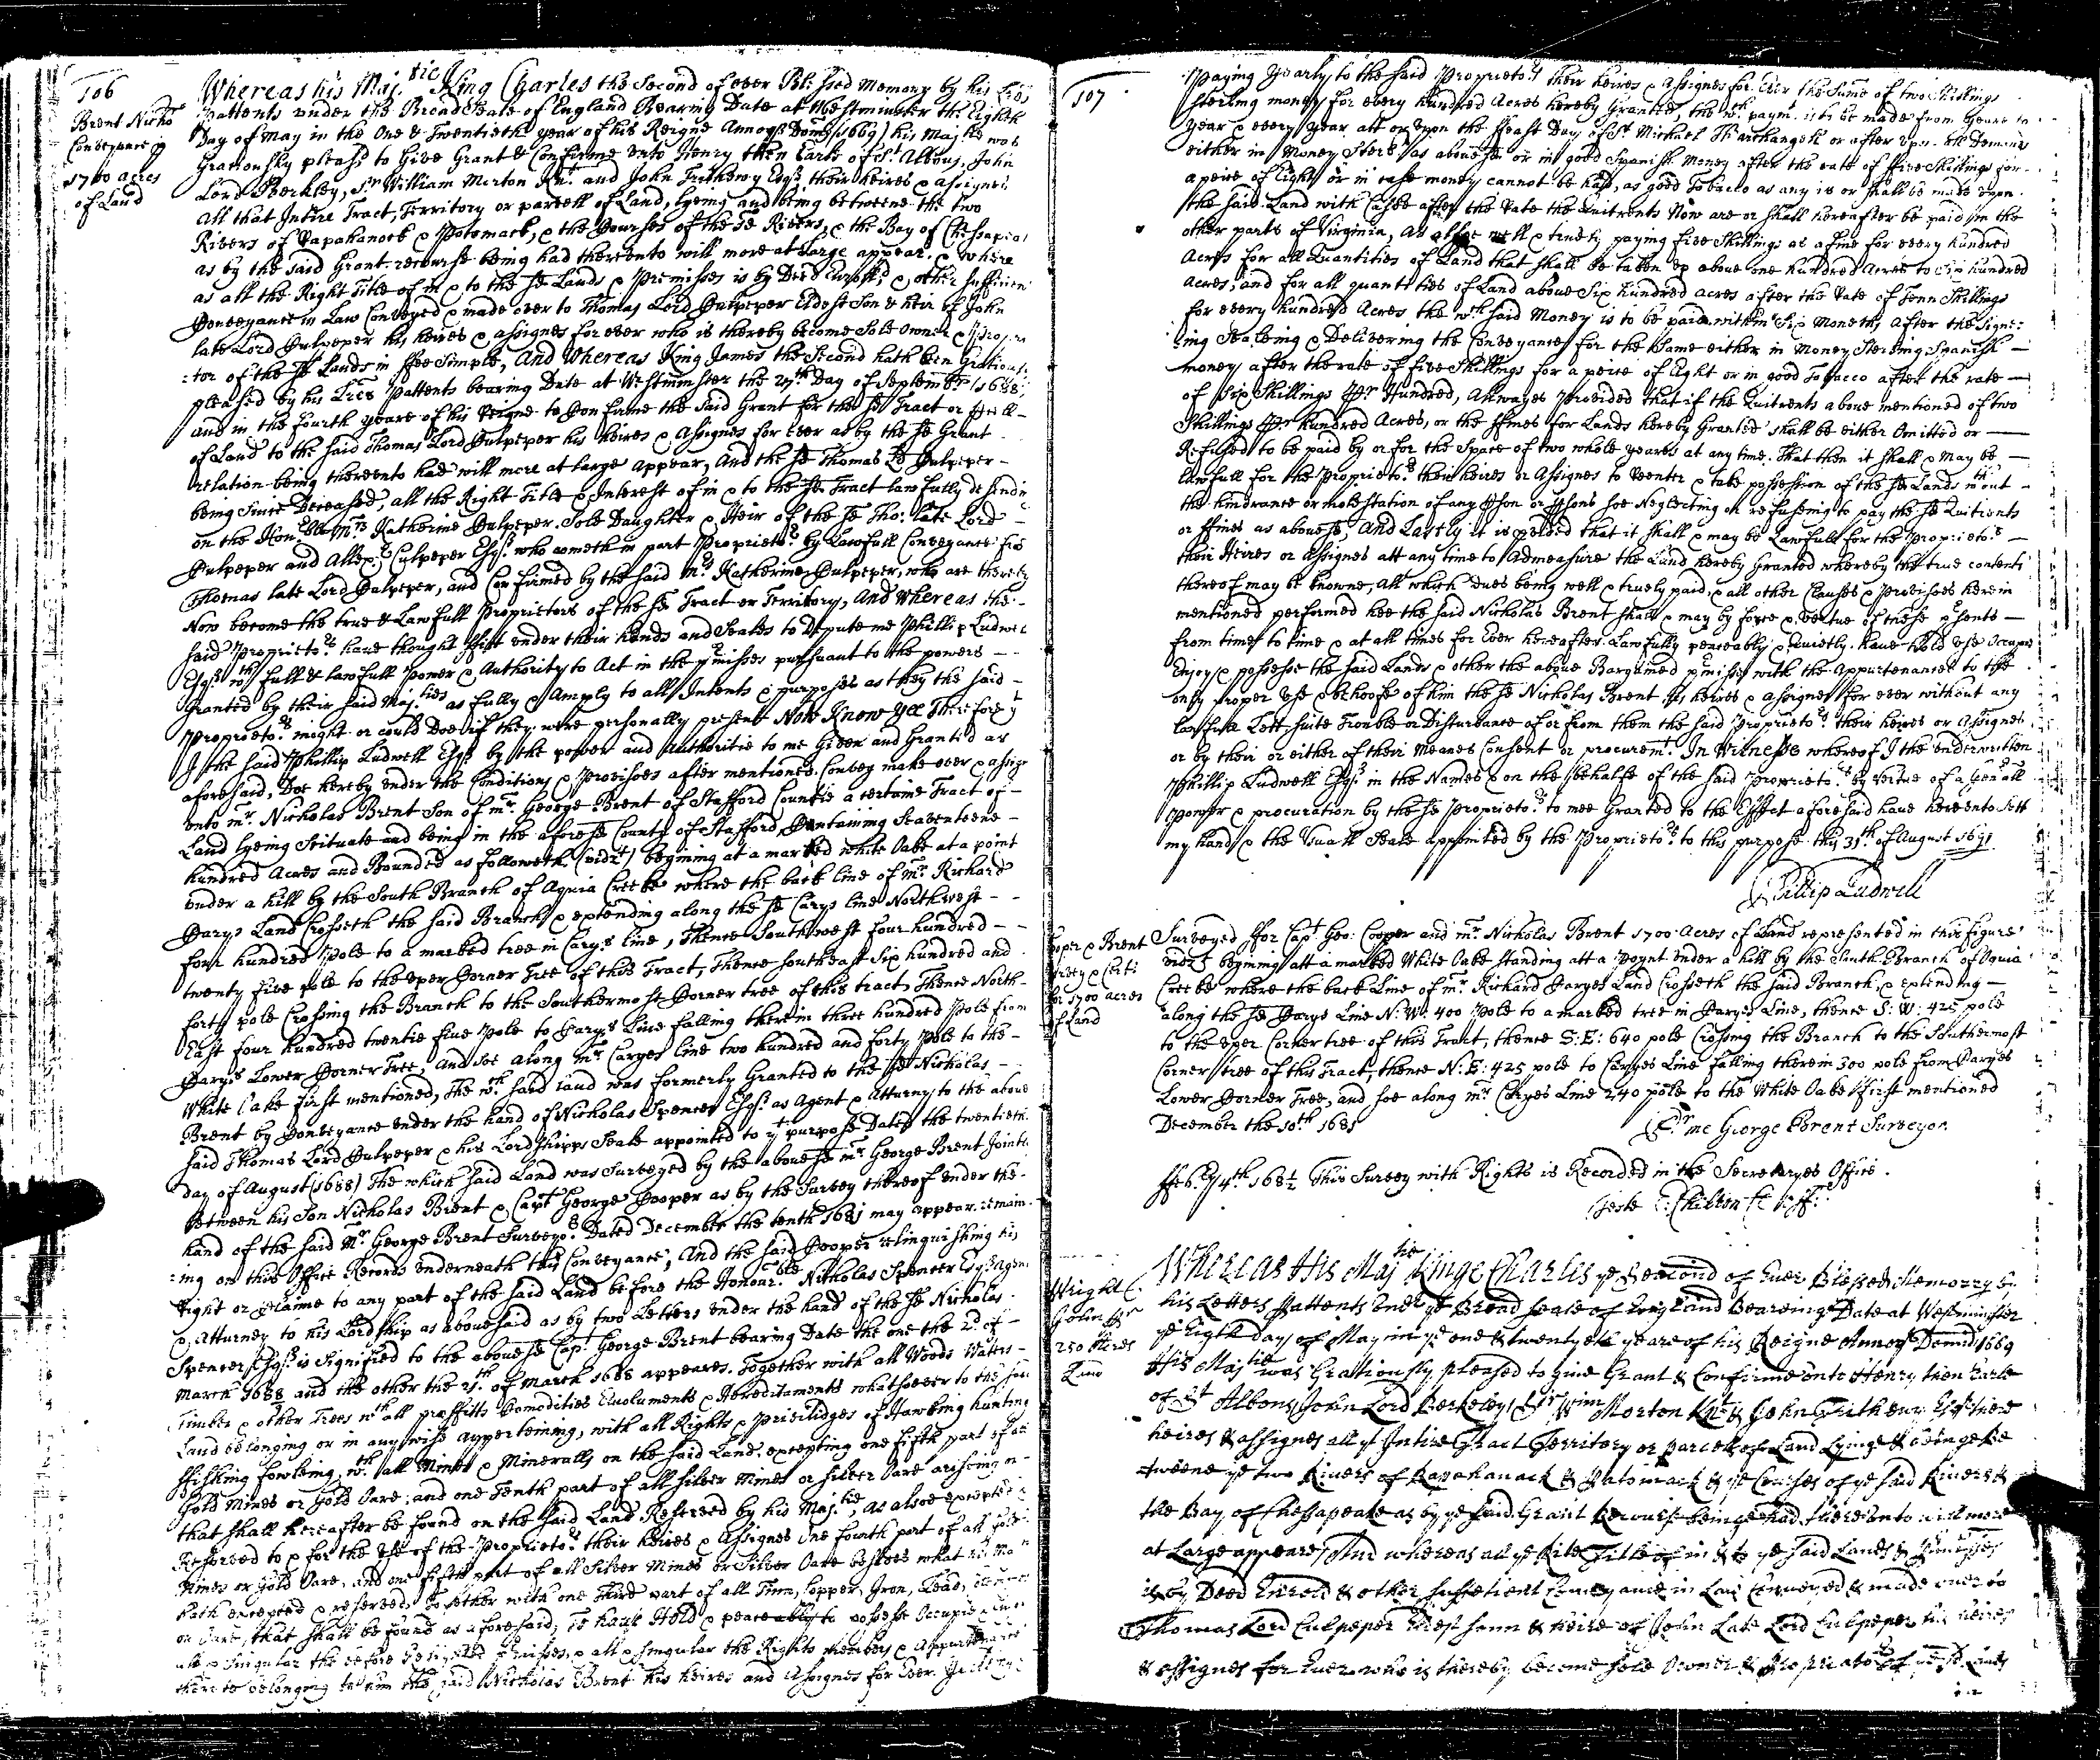 106
Brent Nicho
Conveyance of
1700 acres
of Land
Whereas his Maj.tie King Charles the Second of ever Bli: ssed Memory by his
Pattents under the Broad Seale of England Bearing Date at Westminster the Eighth
Day of May in the One & Twentieth year of his Reigne Annoq Domj (1669) his Maj.tie was
Gratiously pleas'd to Give Grant & Confirme unto Henry then Earle of St. Albons, John
Lord Berkley, Sr. William Morton Knt. and John Trethewy Esqr. their heires & assignes
all that Intire Tract, Territory or parcell of Land, lyeing and being betweene the two
Rivers of Rapahanock & Potomack, & the Courses of the sd Rivers, & the Bay of Chessapiac
as by the said Grant recourse being had thereunto will more at Large appear. & where
as all the Right Title of in & to the sd Lands & Premisses is by Deed Enroll'd, & other sufficient
Conveyance in Law Conveyed & made over to Thomas Lord Culpeper Eldest Son & heir of John
late Lord Culpeper his heires & assignes for ever who is thereby become Sole Owner &
:tor of the sd Lands in ffee Simple, And Whereas King James the Second hath been Gratious:
pleased by his Lres Pattents bearing Date at Westminster the 27th Day of September (1688)
and in the Fourth yeare of his Reigne to Confirme the said Grant for the sd Tract or
of Land to the said Thomas Lord Culpeper his heires & Assignes for ever as by the sd Grant
relation being thereunto had will more at large appear, And the sd Thomas Ld Culpeper -
being Since Deceased, all the Right Title & Interest of in & to the sd Tract lawfully
on the Hon.ble Mrs. Katherine Culpeper Sole Daughter & Heir of the sd Tho: late Lord -
Culpeper and Allexr. Culpeper Esqr. who cometh in part Propriet.r by Lawfull Conveyance
Thomas late Lord Culpeper, and Confirmed by the said Mrs. Katherine Culpeper, who are thereby
Now become the true & Lawfull Proprietors of the sd Tract or Territory, And whereas the -
said Propriet.rs have thought fitt under their hands and Seales to Depute me Phillip Ludwell
Esqr. wth full & lawfull Power & Authority to Act in the pmisses pursuant to the powers -
Granted by their said Maj.ties as fully & Amply to all Intents & purposes as they the said -
Propriet.rs might or could Doe if they were personally present Now Know yee Therefore yt
I the said Phillip Ludwell Esqr. by the power and Authoritie to me Given and Granted as
aforesaid, Doe hereby under the Conditions & Provisoes after mentioned Convey make over & assign
unto mr. Nicholas Brent Son of mr. George Brent of Stafford Countie a certaine Tract of -
Land lyeing Scituate and being in the aforesd County of Stafford, Containing Seaventeene -
hundred Acres and Bounded as followeth (vidzt) begining at a marked white Oake at a point
under a hill by the South Branch of Aquia Creeke where the back line of mr. Richard
Carys Land Crosseth the said Branch, & extending along the sd Carys line Northwest - -
four hundred Pole to a marked tree in Carys line, Thence Southwest four hundred - -
twenty five pole to the uper Corner Tree of this Tract, Thence Southeast Six hundred and
forty pole Crossing the Branch to the Southermost Corner tree of this tract, Thence North-
East four hundred twentie five Pole to Carys Line falling therein three hundred Pole from
Carys Lower Corner Tree, And soe along mr. Caryes line two hundred and forty Pole to the -
White Oake first mentioned, The wch said land was formerly Granted to the sd Nicholas -
Brent by Conveyance under the hand of Nicholas Spencer Esqr. as Agent & Atturny to the above
said Thomas Lord Culpeper & his Lordshipps Seale appointed to yt purpose Dated the twentieth
day of August (1688) The which said Land was Surveyed by the abovesd mr. George Brent Jointly
between his Son Nicholas Brent & Capt George Cooper as by the Survey thereof under the -
hand of the said Mr. George Brent Survey.r Dated December the tenth 1681 may appear remain-
:ing on this Office Records underneath this Conveyance, And the said Cooper relinquishing his
Right or Claime to any part of the said Land before the Honour.ble Nicholas Spencer Esqr. Agent
& Atturney to his Lordship as abovesaid as by two Letters under the hand of the sd Nicholas
Spencer Esqr. is Signified to the abovesd Capt. George Brent bearing Date the one the 2d of -
March 1688 and the other the 21th. of March 1688 appeares. Together with all Woods Waters -
Timber & other Trees wth all proffitts Comodities Emoluments & Hereditaments whatsoever to the said
Land belonging or in any wise apperteining, with all Rights & Priviledges of Hawking hunting
ffishing fowleing, wth. all Mines & Mineralls on the said Land, excepting one fifth part of all
Gold Mines or Gold Oare, and one Tenth part of all silver Mines or silver Oare ariseing or -
that shall hereafter be found on the said Land Reserved by his Maj.tie, As alsoe excepted &
Reserved to & for the Use of the Propriet.rs their heires & Assignes One fourth part of all Gold
Mines or Gold Oare, and one fifth part of all Silver Mines or Silver Oare besides what his Ma
hath excepted & reserved, Together with one Third part of all Tinn, Copper, Iron, Lead,
or Oare, that shall be found as aforesaid, To have Hold & peaceably to possesse Occupie &
all & singular the before Bargained Premisses, & all & singular the Rights members & Appurtenances
thereto belonging to him the said Nicholas Brent his heires and Assignes for Ever.
107
Paying Yearly to the said Propriet.rs their heires & Assignes for Ever the sume of two Shillings
Sterling money for every hundred Acres hereby Granted, the wch. paymt. is to be made from Yeare to
Year & every Year att or upon the ffeast Day of St. Michael Th'archangell or after upon the Demand
either in Money Sterl: as abovesd or in good Spanish Money after the rate of ffive Shillings for -
a peice of Eight or in case money cannot be had, as good Tobacco as any is or shall be made upon -
the said Land with Caske after the Rate the Quitrents Now are or shall hereafter be paid in the
other parts of Virginia, As alsoe well & truely paying five Shillings as a fine for every hundred
Acres for all Quantities of Land that shall be taken up above one hundred Acres to Six hundred
Acres, and for all quantities of Land above Six hundred acres after the Rate of Tenn Shillings
for every hundred Acres the wch said Money is to be paid within Six Moneths after the Signe-
:ing Sealeing & Delivering the Conveyances for the Same either in Money Sterling Spanish -
money after the rate of five Shillings for a peice of Eight or in good Tobacco after the rate -
of Six Shillings Pr Hundred, Allwayes Provided that if the Quitrents above mentioned of two
Shillings Pr hundred Acres, or the ffines for Lands hereby Granted shall be either Omitted or -
Refused to be paid by or for the Space of two whole yeares at any time. That then it shall & may be -
lawfull for the Propriet.rs their heires or Assignes to Reenter & take possession of the sd Lands wthout -
the hindrance or molestation of any Pson or Psons soe Neglecting or refuseing to pay the sd Quitrents
or ffines as abovesd, And Lastly it is pvided that it shall & may be Lawfull for the Propriet.rs -
their Heires or Assignes att any time to Admeasure the Land hereby Granted whereby the true contents
thereof may be knowne, All which Dues being well & truely paid, & all other Clauses & Provisoes herein
mentioned performed hee the said Nicholas Brent shall & may by force & vertue of these psents -
from time to time & at all times for Ever hereafter Lawfully peaceably & quietly, have Hold use Occupie
Enjoy & possesse the said Lands & other the above Bargained pmisses with the Appurtenances to the
only proper Use & behoofe of him the sd Nicholas Brent his heires & assignes for ever without any
lawfull Lett, suite Trouble or Disturbance of or from them the said Propriet.rs their heires or Assignes
or by their or either of their Meanes Consent or procurem.t In Witnesse whereof I the underwritten
Phillip Ludwell Esqr. in the Names & on the behalfe of the said Propriet.rs by vertue of a Gen.all
power & procuration by the sd Propriet.rs to mee Granted to the Effect aforesaid have hereunto Sett
my hand & the Usuall Seale appointed by the Propriet.rs to this purpose this 31th. of August 1691.
Phillip Ludwell
Cooper & Brent
Survey & Certi
for 1700 acres
of Land
Surveyed ffor Capt Geo: Cooper and mr. Nicholas Brent 1700 Acres of Land represented in this figure
vidzt begining att a marked White Oake standing att a Poynt under a hill by the South Branch of Aquia
Creeke where the back Line of mr. Richard Caryes Land Crosseth the said Branch, & extending -
along the sd Carys Line N: W: 400 Pole to a marked tree in Carys Line, thence S: W: 425 pole
to the uper Corner tree of this Tract, thence S: E: 640 pole Crossing the Branch to the Southermost
Corner tree of this Tract, thence N: E: 425 pole to Caryes Line falling therein 300 pole from Caryes
Lower Corner Tree, and soe along mr. Caryes Line 240 pole to the White Oake first mentioned
December the 10th 1681
Pr me George Brent Surveyor
ffeb.ry 4th. 168½ This Survey with Rights is Recorded in the Secretaryes Office.
Teste E: Chilton
Wright
John
250 Acres
Land
Whereas His Majtie Kinge Charles ye Second of Euer Blessed Memorry by
his Letters Pattents Under ye Broad Seale of England Beareinge Date at Westminster
ye Eigth day of May in ye one & twentyeth yeare of his Reigne Annoq Domni 1669
His Majtie was Grattiously pleased to give Grant & Confirme unto Henry then Earle
of St Albons, John Lord Berkeley, Sr Wm Morton Knt & John Trithewy Esqr their
heires & assignes all yt Intire Tract Territory or parcell of Land Lyinge & beinge be
tweene ye two Rivers of Rapahanack & Patomack & ye Courses of ye said Rivers &
the Bay of Chessapeake as by ye said Grant Recourse beinge had thereunto will more
at Large appeare, And whereas all ye Rite Title of in & to ye said Lands & Premisses
is by Deed Enrold & other suffetient Conveyance in Law Conveyed & made over to
Thomas Lord Culpeper Eldest sonn & heire of John Late Lord Culpeper his heires
& assignes for Euer who is thereby become sole Owner & Proprietor of ye sd Lands